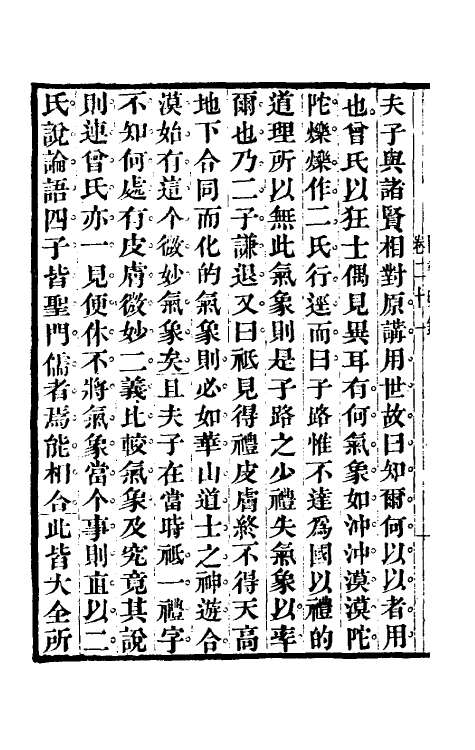 夫子與諸賢相對原講用世故曰知爾何以以者用
也曾氏以狂士偶見異耳有何氣象如沖沖漠漠陀
陀爍爍作二氏行逕而曰子路惟不達為國以禮的
道理所以無此氣象則是子路之少禮失氣象以率
爾也乃二子謙退又曰祇見得禮皮膚終不得天高
地下合同而化的氣象則必如華山道士之神遊合
漠始有這个微妙氣象矣且夫子在當時祇一禮字
不知何處有皮膚微妙二義比較氣象及究竟其說
則連曾氏亦一見便休不將氣象當个事則直以二
氏說論語四子皆聖門儒者焉能相合此皆大全所
卷二十一